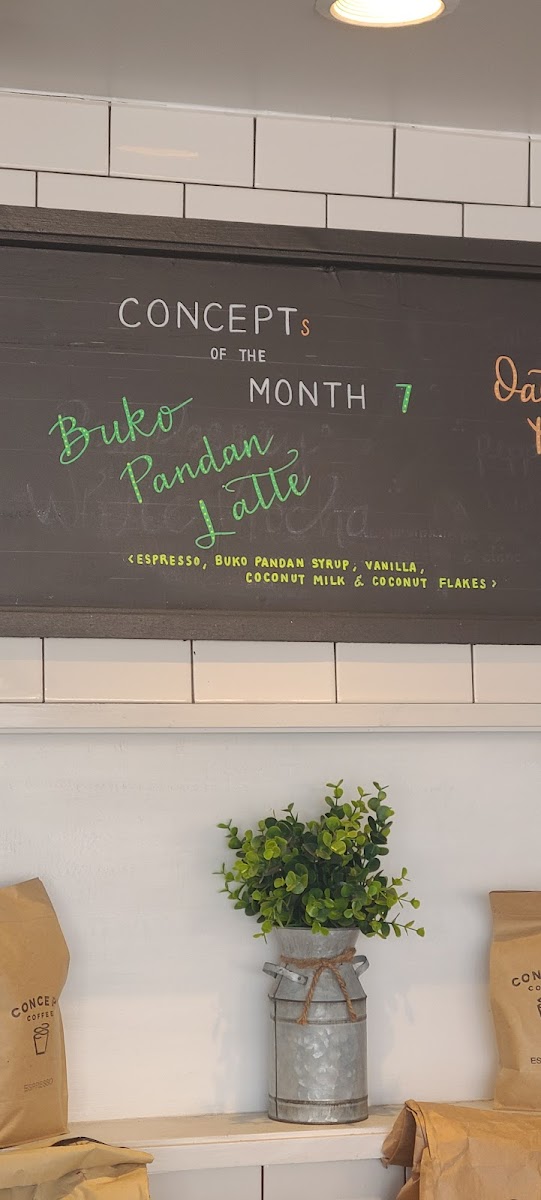 CONCEPTs
OF THE
MONTH 7
Buko
Pandan
Latte
<ESPRESSO, BUKO PANDAN SYRUP, VANILLA,
COCONUT MILK & COCONUT FLAKES>
COFFEE
ESPRESSO